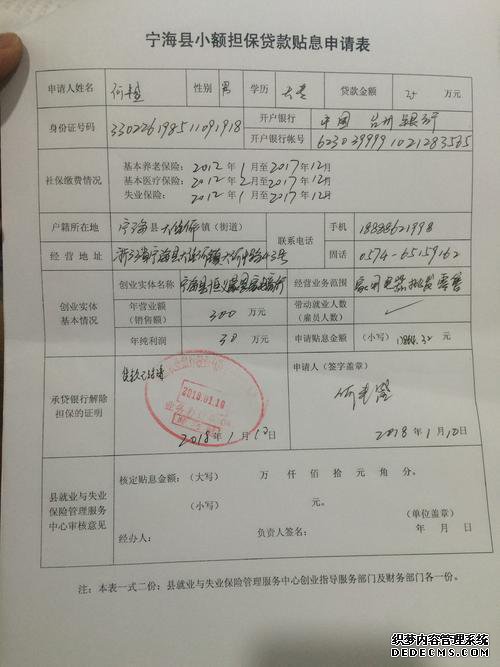 宁海县小额担保贷款贴息申请表
申请人姓名 性别 男 学历 大专 贷款金额 万元
身份证号码 330226198511091918 开户银行 中国 台州 银行
开户银行帐号 6230399991021283565
社保缴费情况
基本养老保险： 2012 年 1 月至 2017 年 12 月
基本医疗保险： 2012 年 2 月至 2017 年 12 月
失业保险： 2012 年 1 月至 2017 年 12 月
户籍所在地 宁海 县 大佳何 镇（街道） 联系电话 手机 18888621998
经营地址 浙江省宁海县大佳何镇 固话 0574-65159162
创业实体基本情况
创业实体名称 宁海县 经营业务范围 家用电器批发零售
年营业额（销售额） 300 万元 带动就业人数（雇员人数）
年纯利润 30 万元 申请贴息金额 （小写） 元
承贷银行解除担保的证明
2018.01.10
2018 年 1 月 10 日
申请人（签字盖章）
2018 年 1 月 10 日
县就业与失业保险管理服务中心审核意见
核定贴息金额：（大写） 万 仟 佰 拾 元 角 分。
（小写） 元。
（单位盖章）
经办人： 负责人签名： 年 月 日
注：本表一式二份：县就业与失业保险管理服务中心创业指导服务部门及财务部门各一份。
织梦内容管理系统
DEDECMS.COM